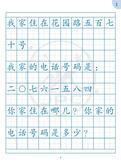 我家住在花园路五百七
十号
我家的电话号码是：
二〇七六一五八四
你家住在哪儿？你家的
电话号码是多少？